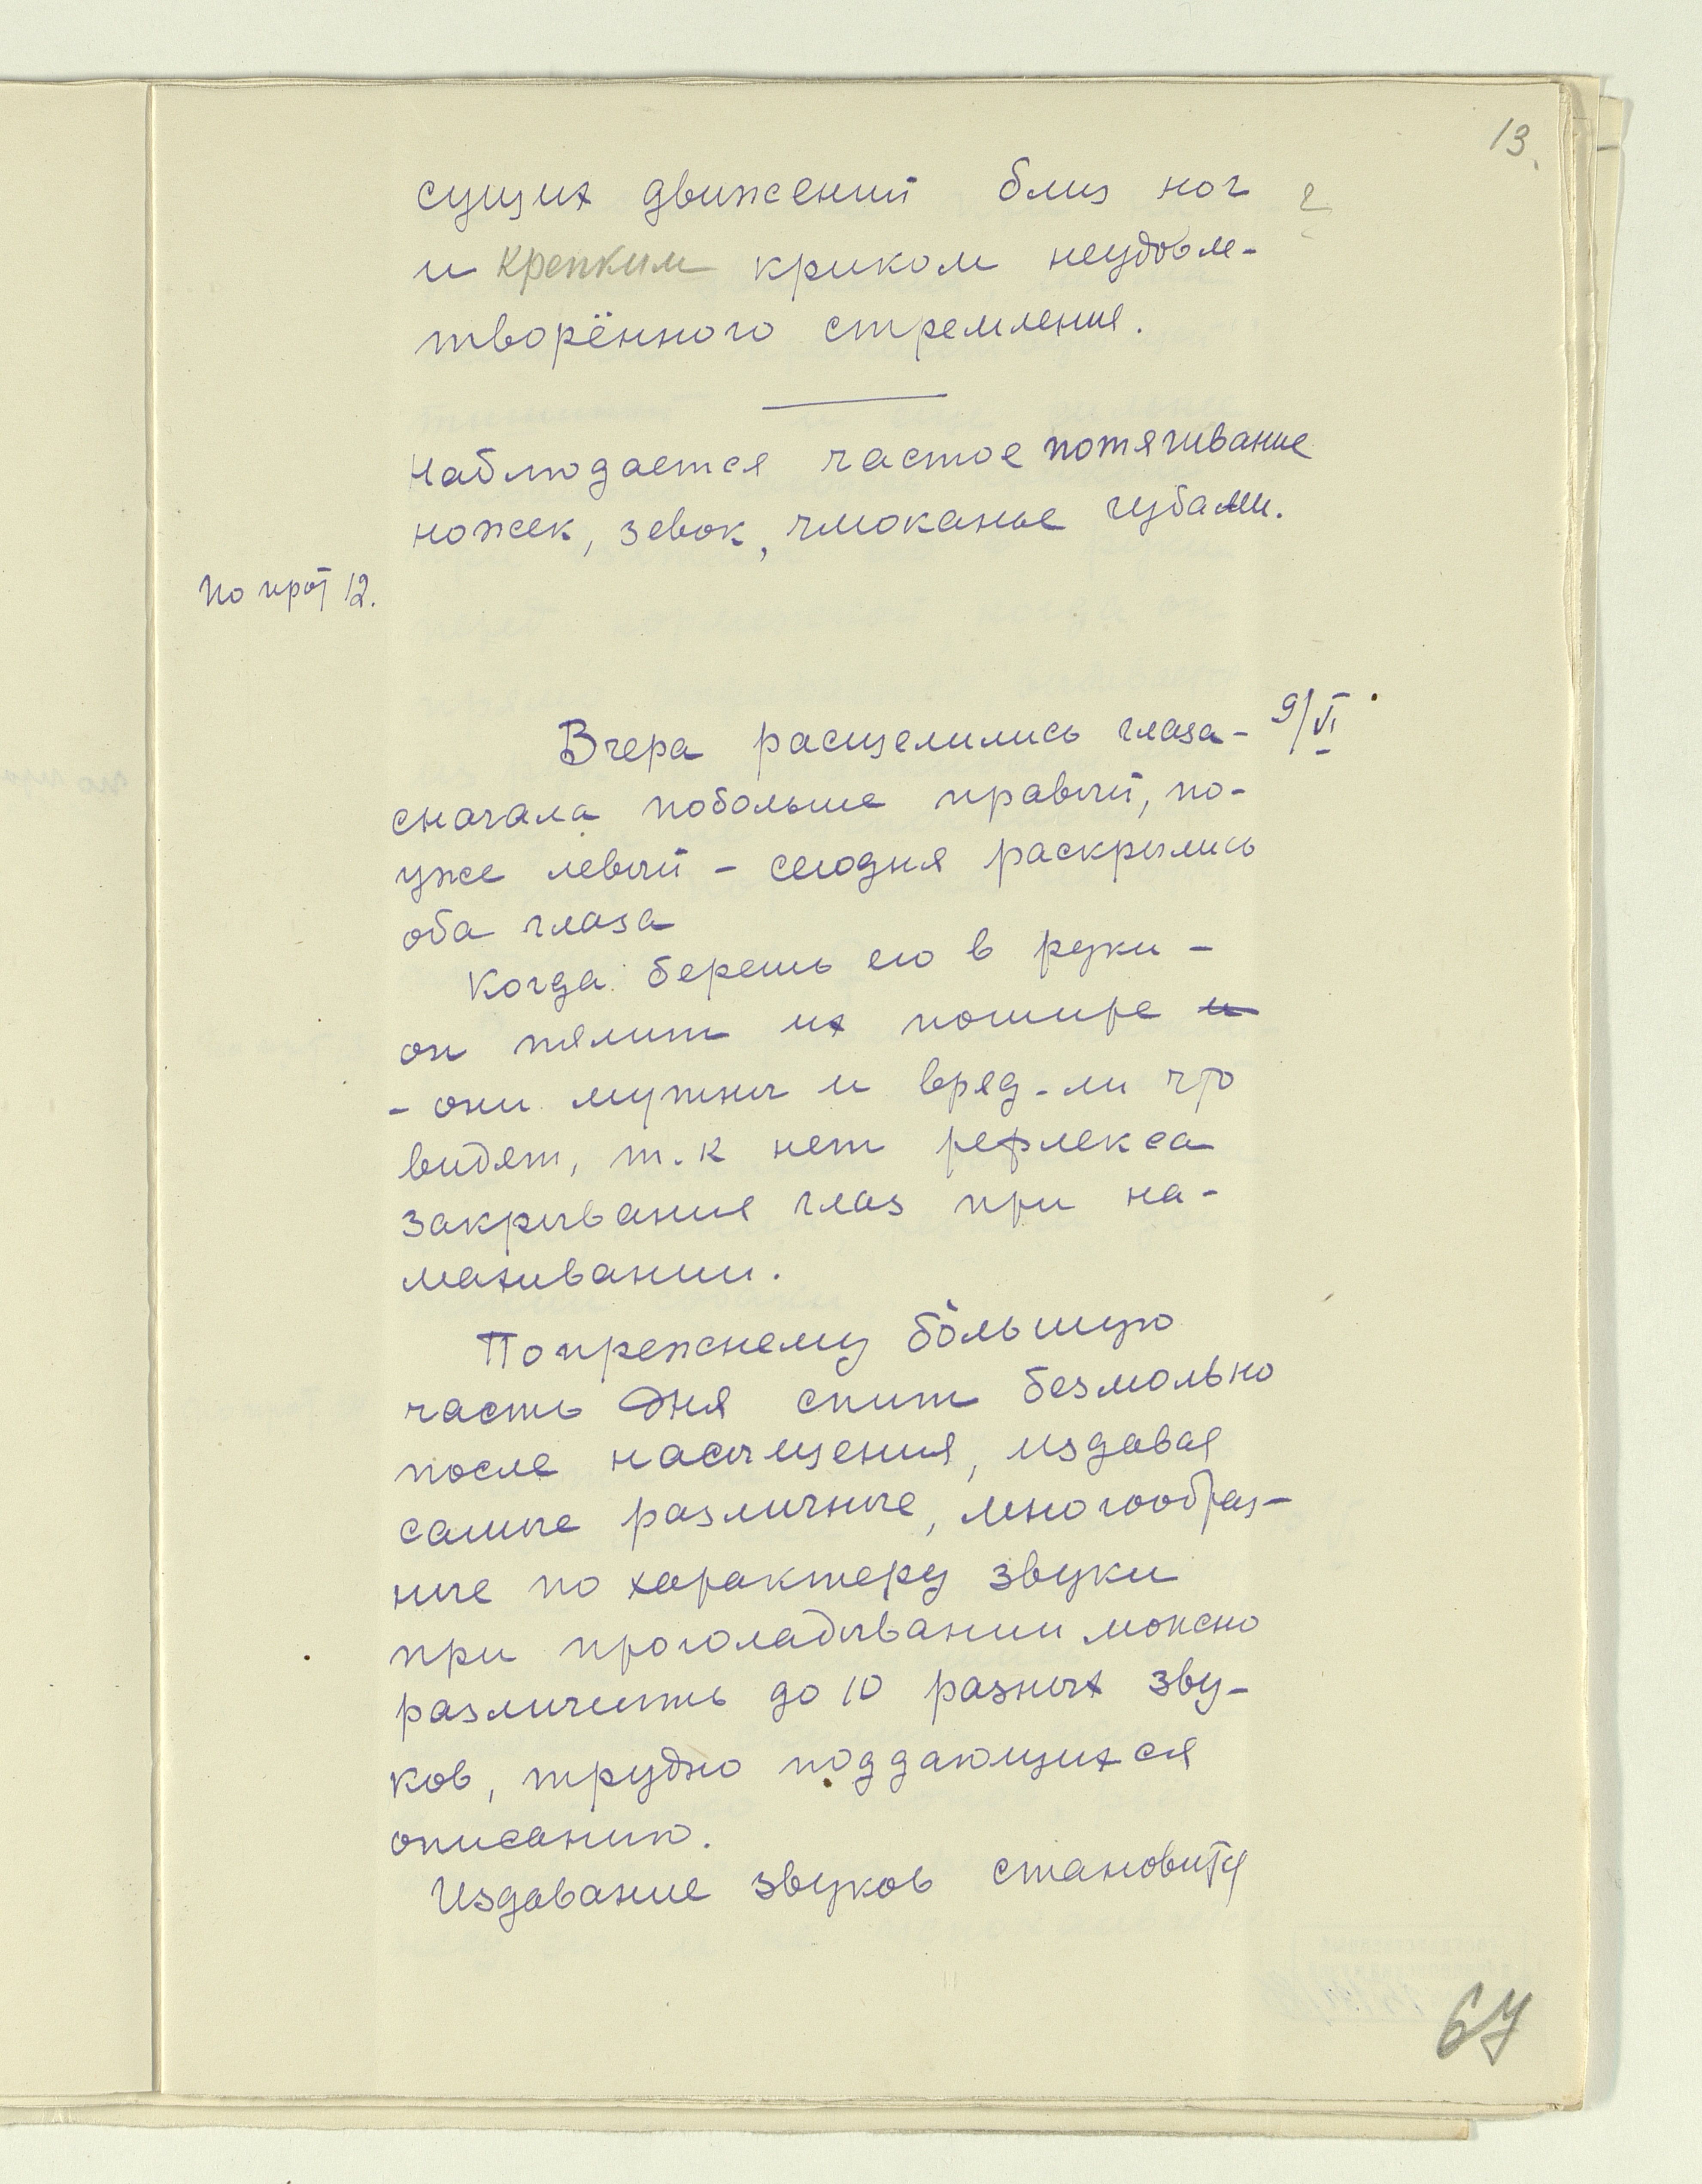 13.
сущих движений близ ног ?
и крепким криком неудовле-
творённого стремления.
Наблюдается частое потягивание
ножек, зевок, чмоканье губами.
По прот 12.
9/VI
Вчера расщелились глаза-
сначала побольше правый, по-
уже левый - сегодня раскрылись
оба глаза
Когда берешь его в руки -
он пялит их пошире и
- они мутны и вряд-ли что
видят, т.к нет рефлекса
закрывания глаз при на-
махивании.
Попрежнему бо́льшую
часть дня спит безмолвно
после насыщения, издавая
самые различные, многообраз-
ные по характеру звуки
при проголадывании можно
различить до 10 разных зву-
ков, трудно поддающихся
описанию.
Издавание звуков становится
67